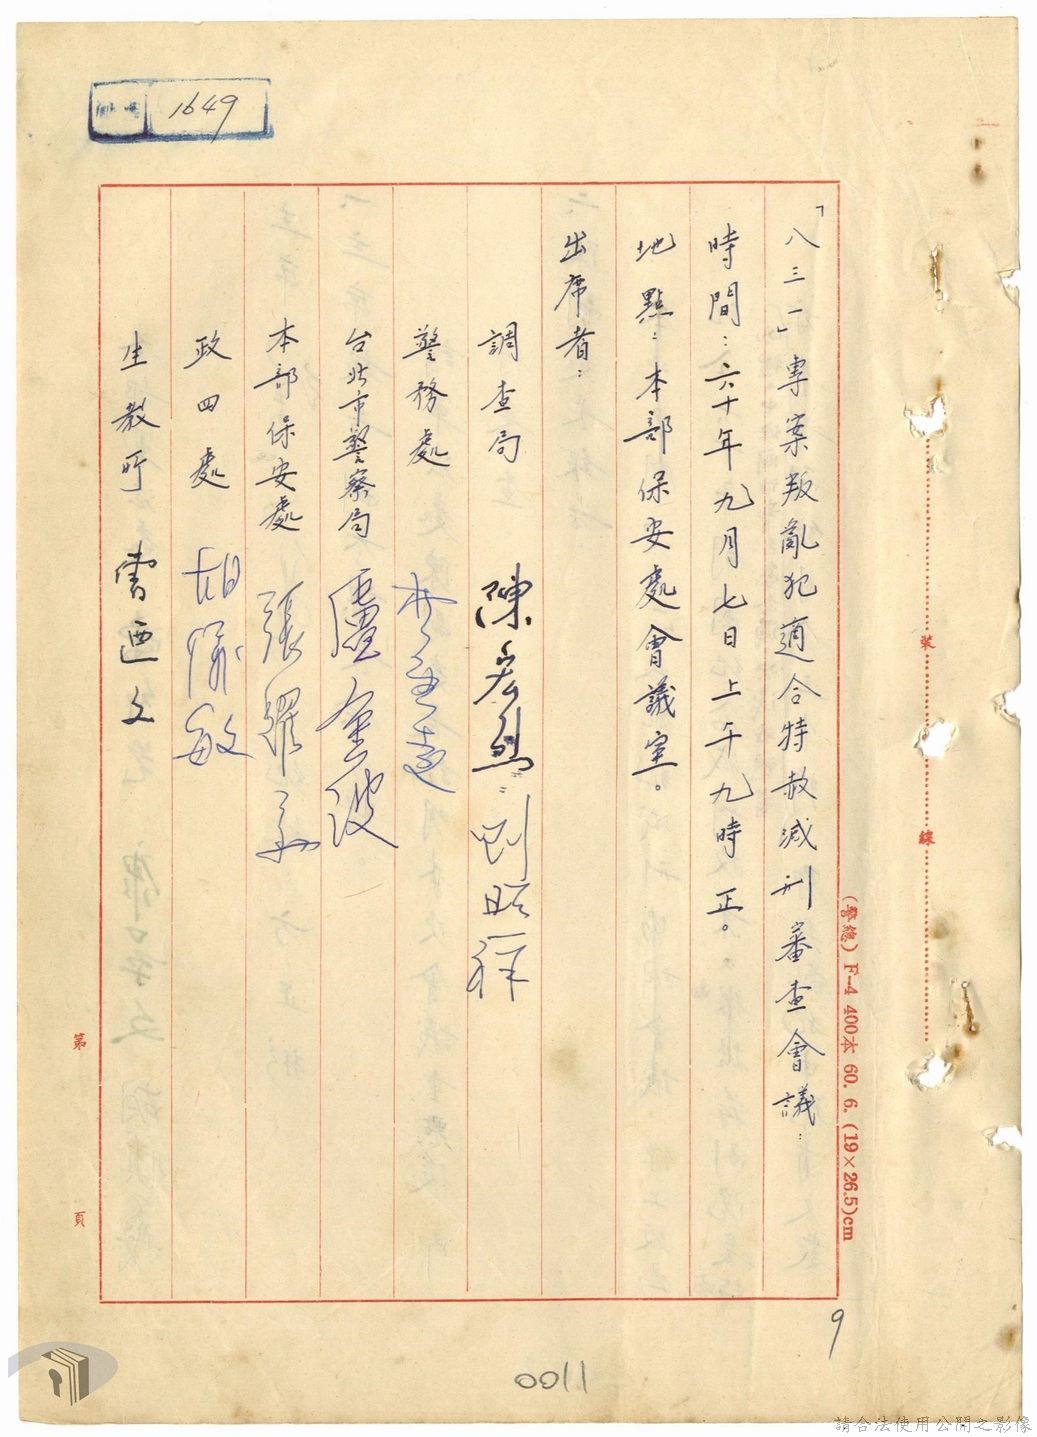 1649
「八三一」專案叛亂犯適合特赦減刑審查會議：
時間：六十年九月七日上午九時正。
地點：本部保安處會議室。
出席者：
調查局 陳宏 劉昭祥
警務處
台北市警察局 盧金波
本部保安處 張
政四處 胡 敏
生教所 文
裝
線
(警總) F-4 400本 60. 6. (19×26.5)cm
第
頁
9
1100
請合法使用公開之影像